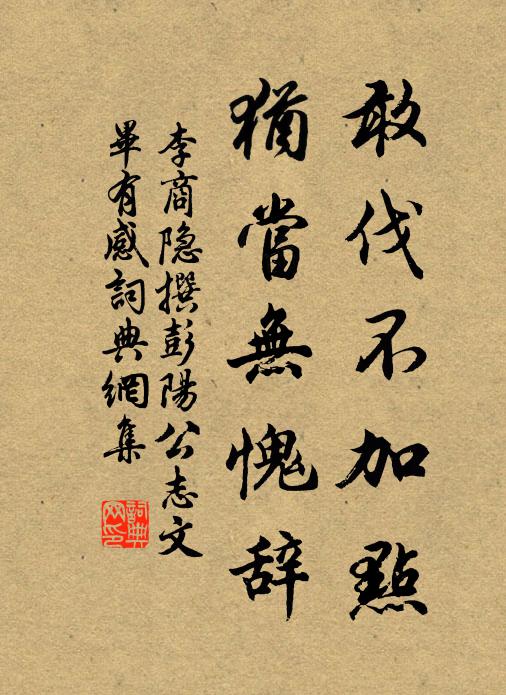 敢伐不加點
猶當無愧辞
李商隐撰彭陽公志文
畢有感詞典網集
詞典
网印